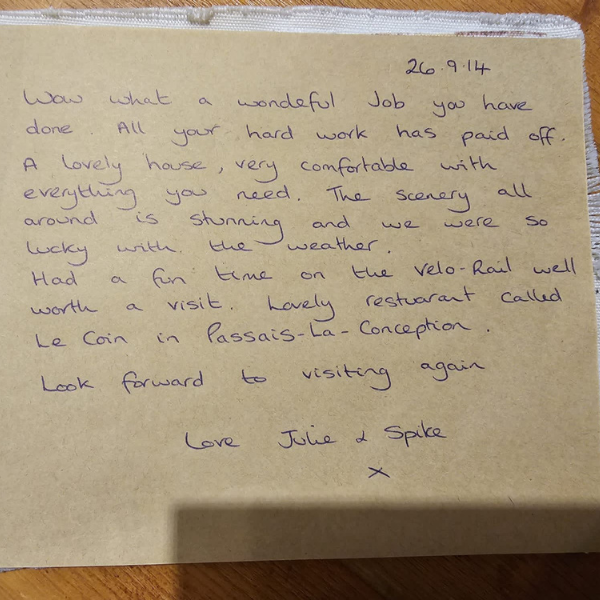 26.9.14
Wow what a wondeful Job you have
done. All your hard work has paid off.
A lovely house, very comfortable with
everything you need. The scenery all
around is stunning and we were so
lucky with the weather.
Had a fun time on the Velo-Rail well
worth a visit. Lovely restuarant called
Le Coin in Passais-La-Conception.
Look forward to visiting again
Love Julie & Spike
x